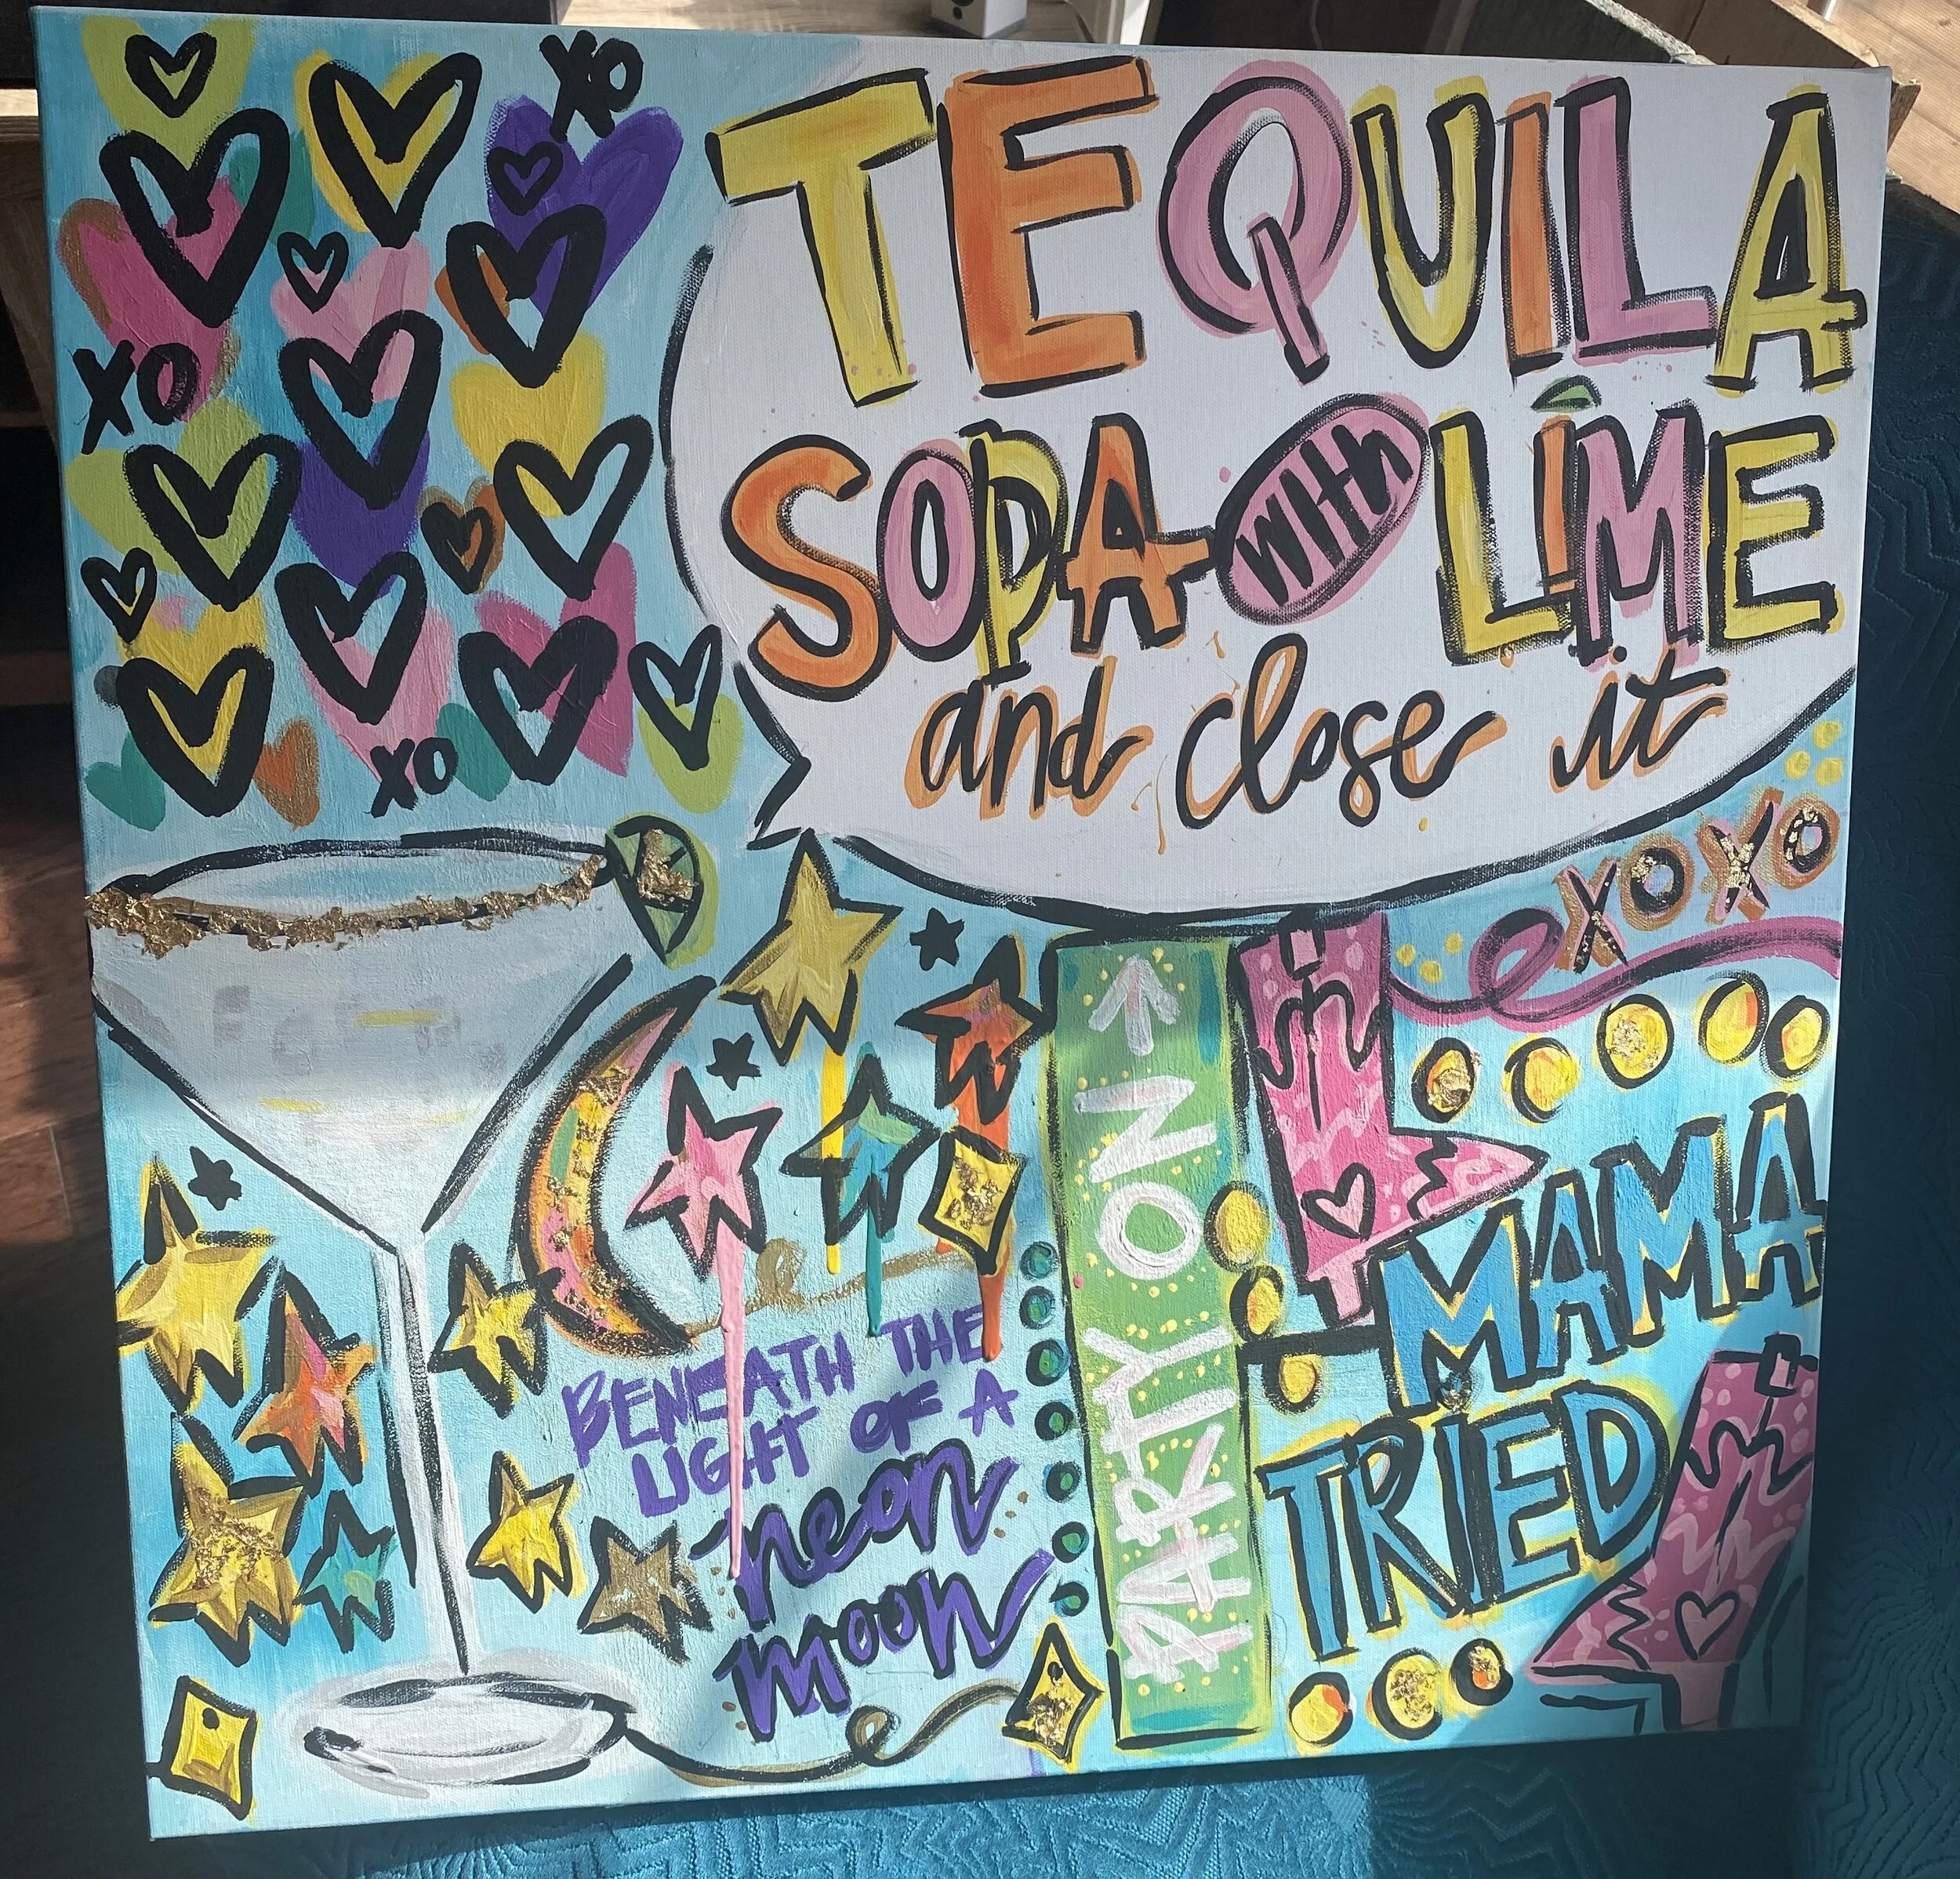 XO
XO
XO
TEQUILA
SODA WITH LIME
and close it
XOXO
PARTY ON
MAMA
TRIED
BENEATH THE
LIGHT OF A
neon
moon